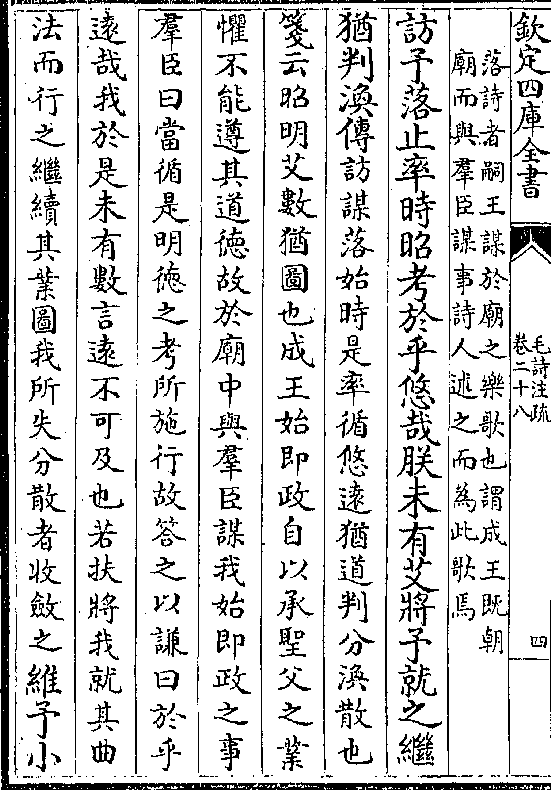 欽定四庫全書
毛詩注疏
卷二十八
四
落詩者嗣王謀於廟之樂歌也謂成王既朝
廟而與羣臣謀事詩人述之而為此歌焉
訪予落止率時昭考於乎悠哉朕未有艾將予就之繼
猶判渙傳訪謀落始時是率循悠逺猶道判分渙散也
箋云昭明艾數猶圖也成王始即政自以承聖父之業
懼不能遵其道德故於廟中與羣臣謀我始即政之事
羣臣曰當循是明徳之考所施行故答之以謙曰於乎
逺哉我於是未有數言逺不可及也若扶將我就其典
法而行之繼續其業圖我所失分散者收斂之維予小